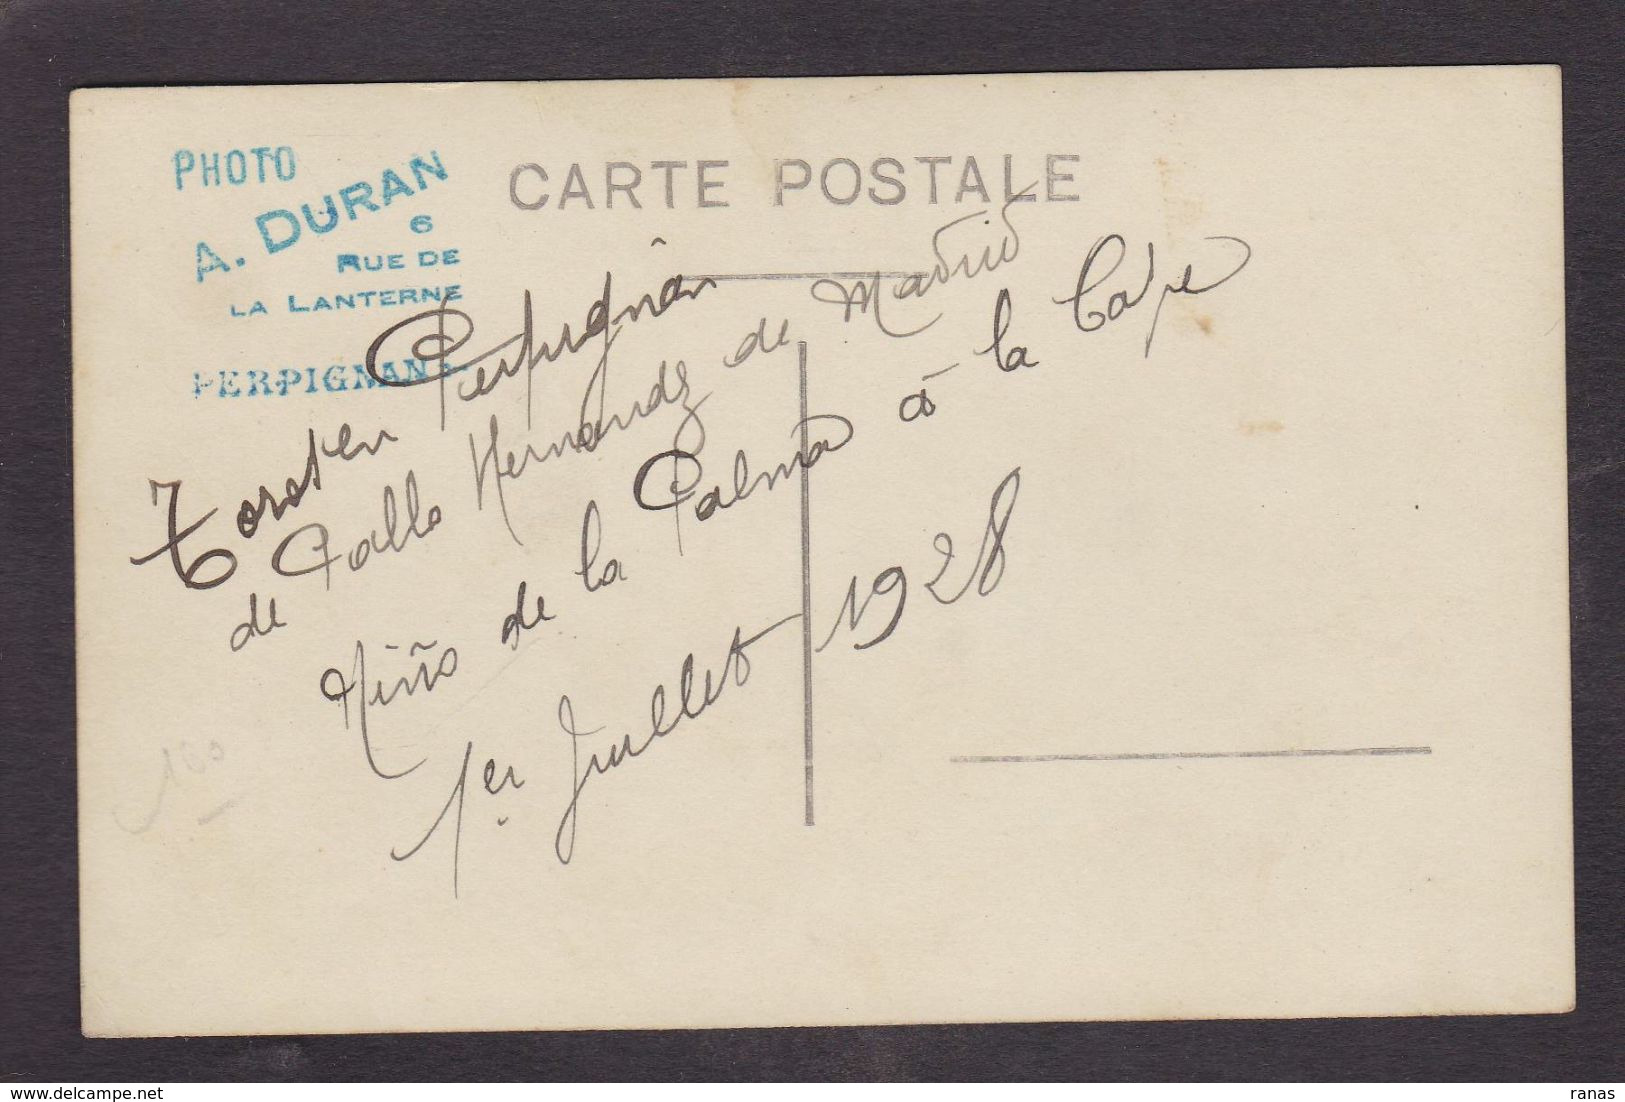 PHOTO
A. DURAN
6
RUE DE
LA LANTERNE
PERPIGNAN
CARTE POSTALE
Perpignan
de Madrid
Niño de la Palma à la Cape
1er Juillet 1928
100
delcampe.net
ranas